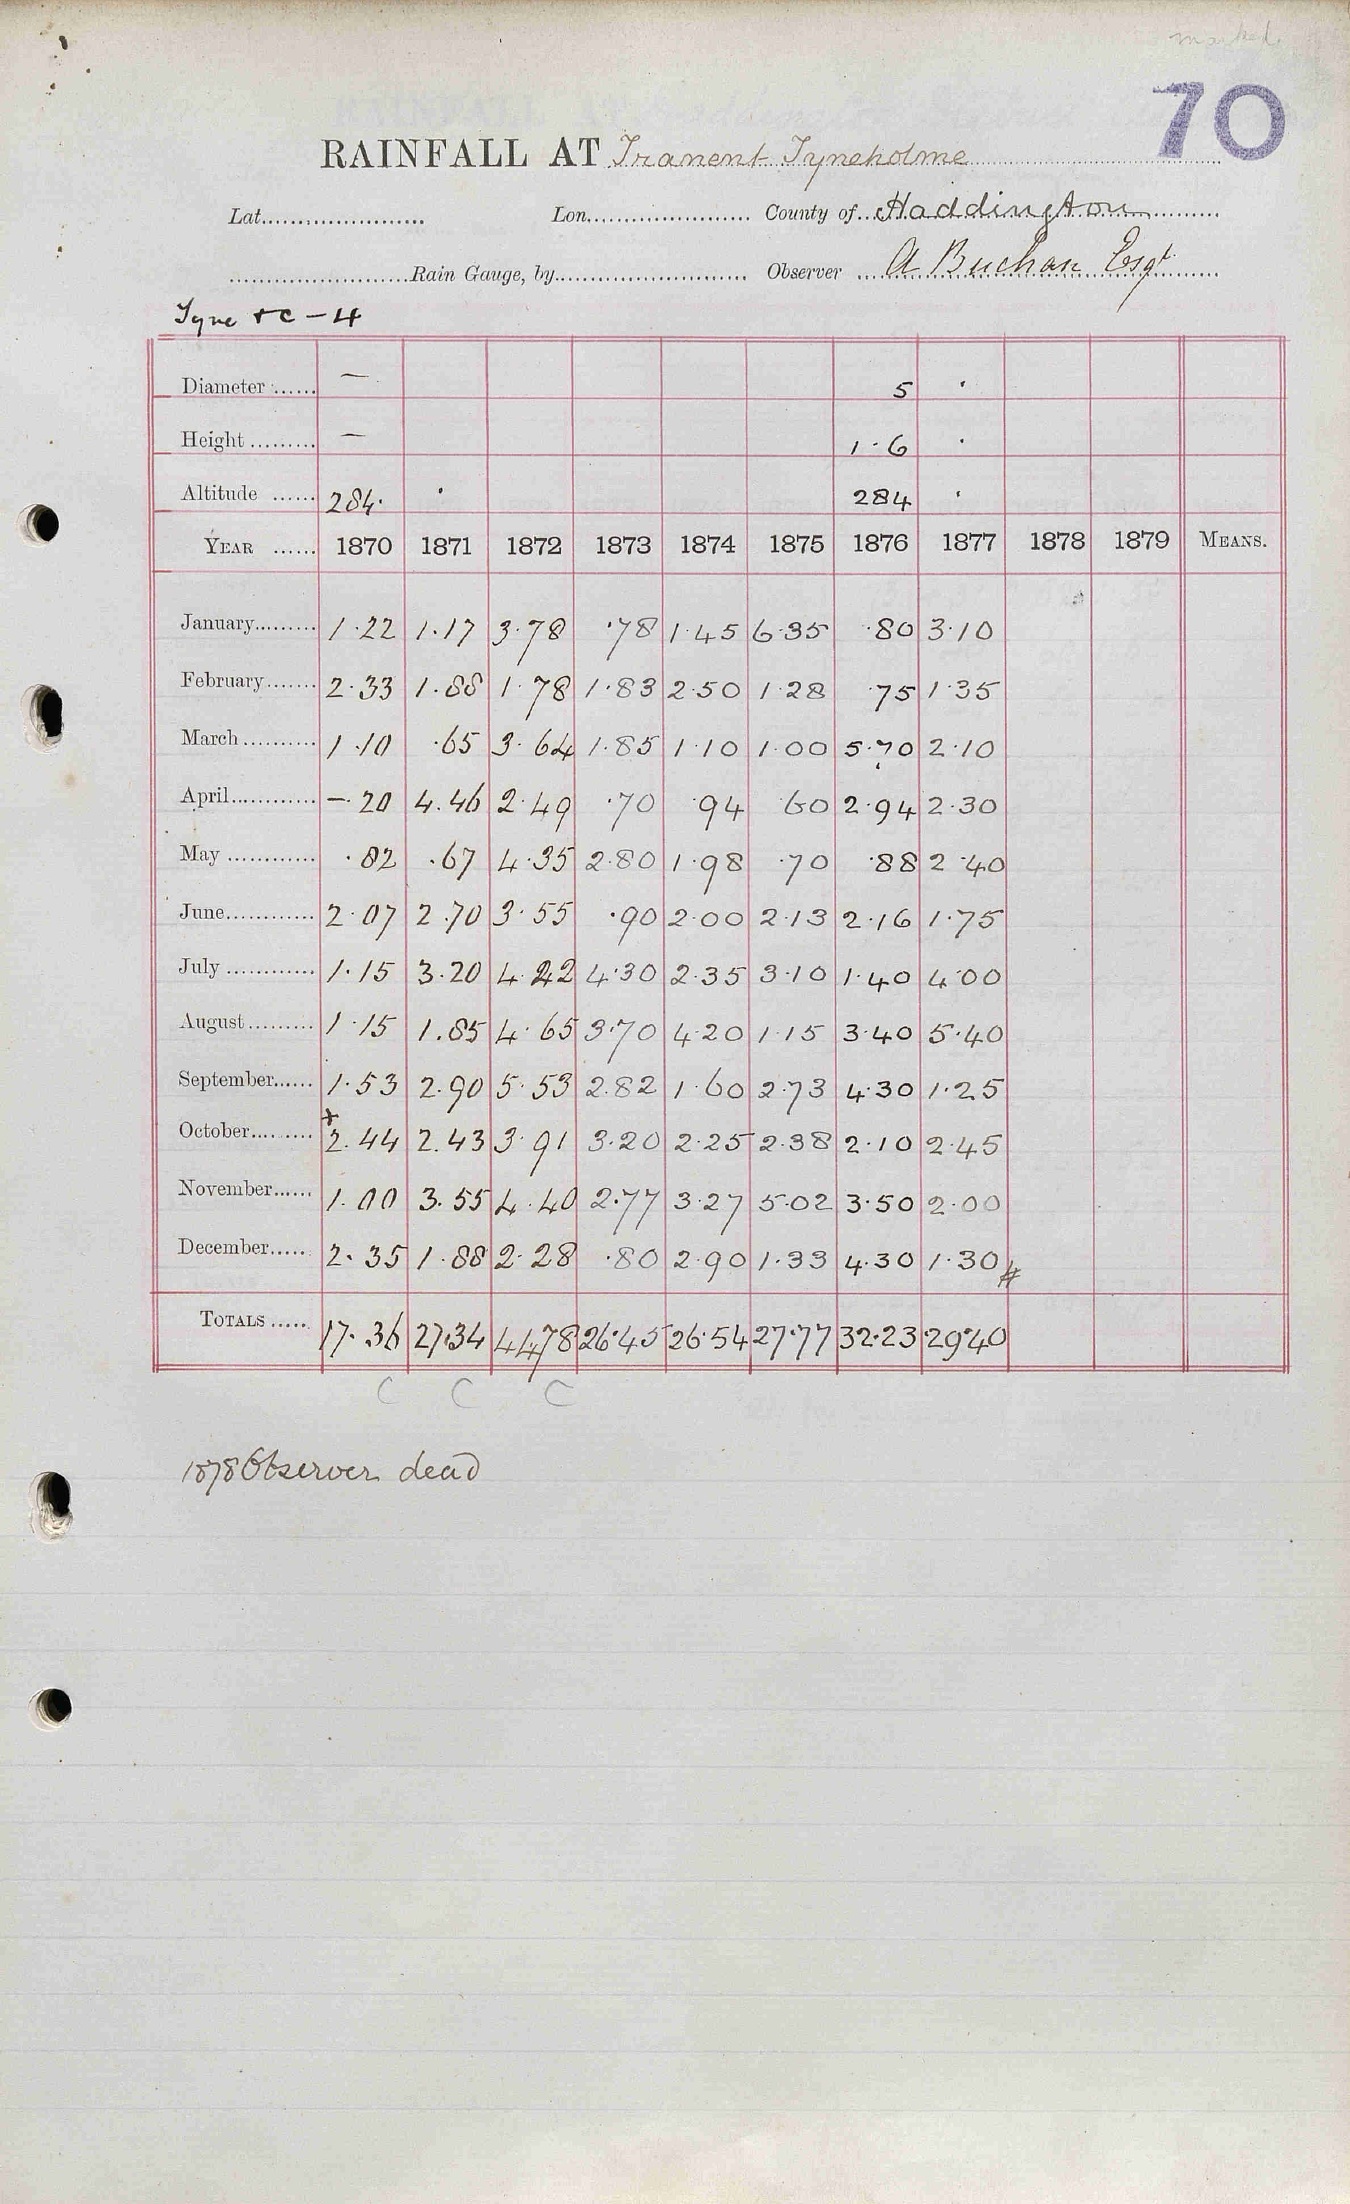 marked
70
RAINFALL AT Tranent Tyneholme
Lat. Lon. County of Haddington
Rain Gauge, by Observer A Buchan Esqr
Tyne &c - 4
Diameter — 5 ·
Height — 1·6 ·
Altitude 284· · 284 ·
YEAR 1870 1871 1872 1873 1874 1875 1876 1877 1878 1879 MEANS.
January 1·22 1·17 3·78 ·78 1·45 6·35 ·80 3·10
February 2·33 1·88 1·78 1·83 2·50 1·28 ·75 1·35
March 1·10 ·65 3·64 1·85 1·10 1·00 5·70 2·10
April —·20 4·46 2·49 ·70 ·94 ·60 2·94 2·30
May ·82 ·67 4·35 2·80 1·98 ·70 ·88 2·40
June 2·07 2·70 3·55 ·90 2·00 2·13 2·16 1·75
July 1·15 3·20 4·42 4·30 2·35 3·10 1·40 4·00
August 1·15 1·85 4·65 3·70 4·20 1·15 3·40 5·40
September 1·53 2·90 5·53 2·82 1·60 2·73 4·30 1·25
October + 2·44 2·43 3·91 3·20 2·25 2·38 2·10 2·45
November 1·00 3·55 4·40 2·77 3·27 5·02 3·50 2·00
December 2·35 1·88 2·28 ·80 2·90 1·33 4·30 1·30 #
TOTALS 17·36 27·34 44·78 26·45 26·54 27·77 32·23 29·40
C C C
1878 Observer dead